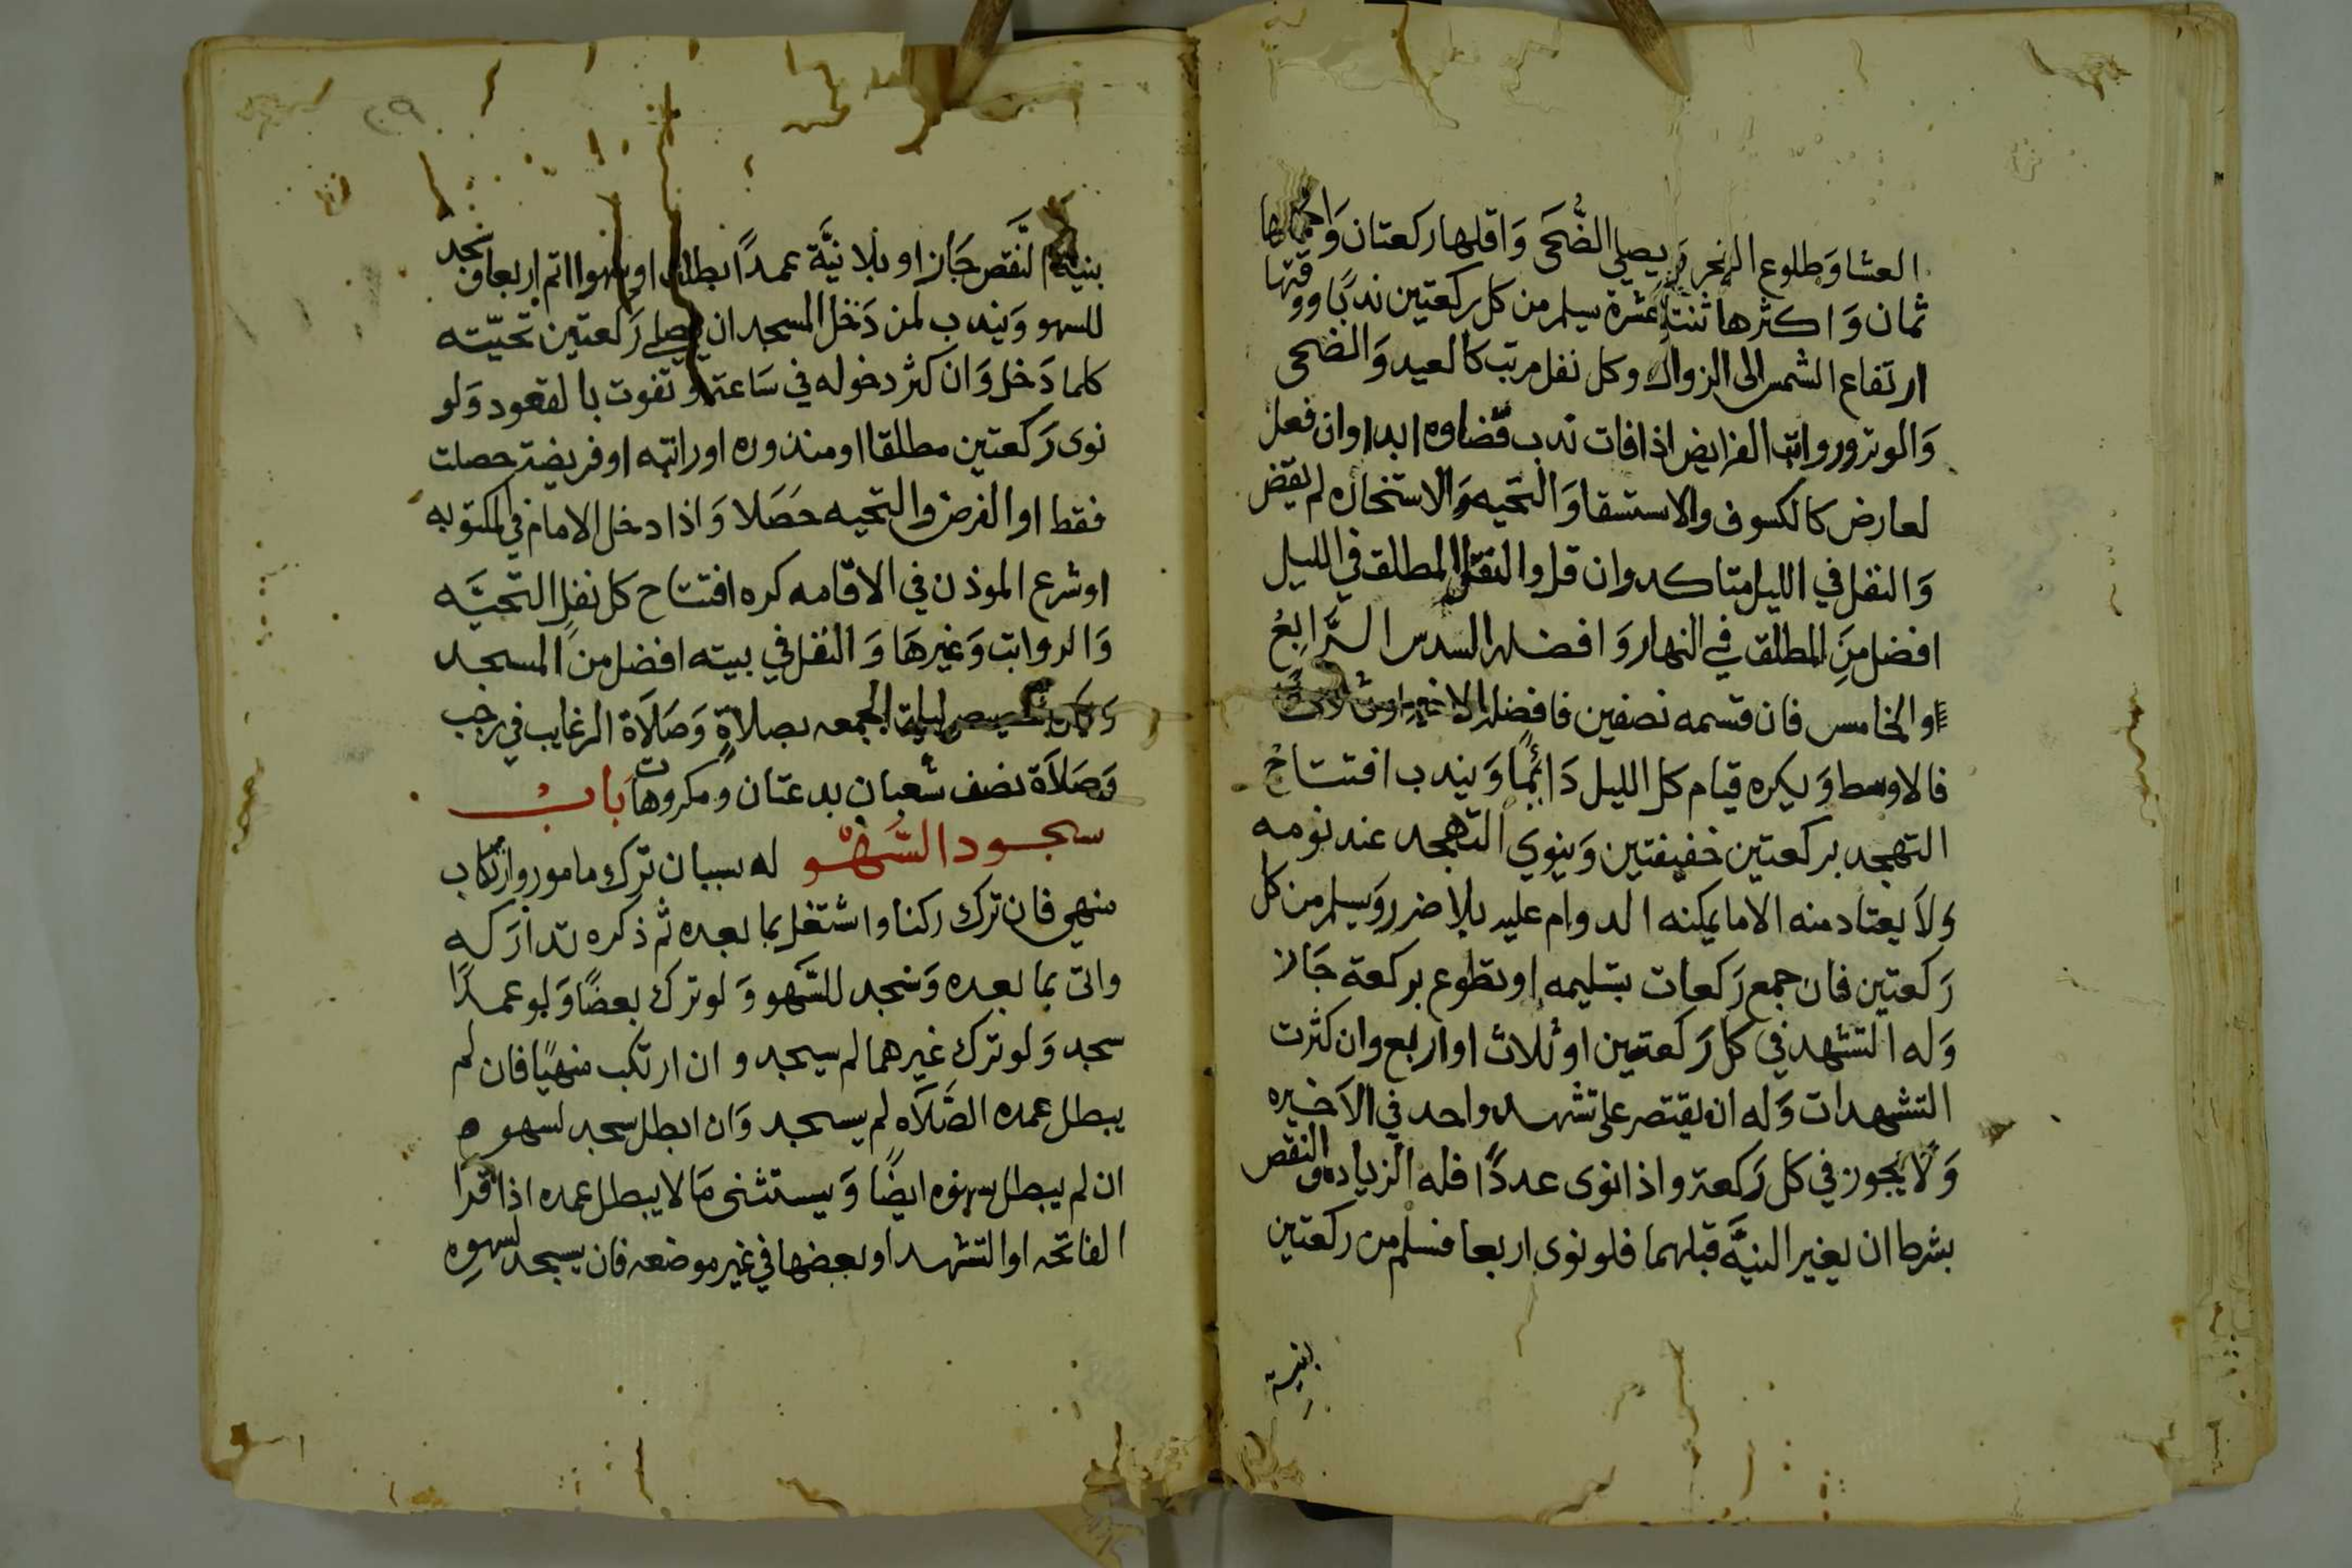 العشا وَطلوع الفجر وَيصلي الضُّحَى وَاقلها ركعتان وَاكملها
ثمان وَاكثرها ثنتا عَشرة يسلم من كل ركعتين ندبًا ووقتها
ارتفاع الشمس الى الزوال وكل نفل مرتب كالعيد وَالضحى
وَالوتر ورواتب الفرايض اذا فات ندب قضاوه ابدا وان فعل
لعارض كالكسوف والاستسقا وَالتحيه وَالاستخاره لم يقض
وَالنفل في الليل متاكد وان قل والنفل المطلق في الليل
افضل مِنَ المطلق في النهار وَافضله السدس الرَّابعُ
والخامس فان قسمه نصفين فافضله الاخير او اثلاثًا
فالاوسط وَيكره قيام كل الليل دَائمًا وَيندب افتتاح
التهجد بركعتين خفيفتين وَينوي التهجد عند نومه
وَلاَ يعتاد منه الا ما يمكنه الدوام عليه بلا ضرر وَيسلم من كل
رَكعتين فان جمع رَكعات بتسليمه او تطوع بركعة جَاز
وَله التشهد في كل رَكعتين او ثلاث او اربع وان كثرت
التشهدات وَله ان يقتصر على تشهد واحد في الاَخيره
وَلا يجوز في كل رَكعة واذا نوى عددًا فله الزياده والنقص
بشرط ان يغير النيَّه قبلهما فلو نوى اربعا فسلم من ركعتين
بنية
٢٩
بنية النَّقص جَاز او بلا نيَّة عمدًا بطلت او سهوا اتم اربعا وسجد
للسهو وَيندب لمن دَخل المسجد ان يصلي رَكعتين تحيّته
كلما دَخل وَان كثر دخوله في سَاعته وتفوت بالقعود وَلو
نوى رَكعتين مطلقا او منذوره او راتبه او فريضة حصلت
فقط او الفرض والتحيه حَصَلا وَاذا دخل الامام في المكتوبه
او شرع الموذن في الاقامه كره افتتاح كل نفلٍ التحيَّه
وَالرواتب وَغيرهَا وَالنفل في بيته افضل منَ المسجد
وَيكره تخصيص ليلة الجمعه بصلاَةٍ وَصَلاَة الرغايب في رجب
وَصَلاَة نصف شعبان بدعتان ومكروهتان بَاب
سجود السَّهْو له سببان ترك مامور وارتكاب
منهي فان ترك ركنا واشتغل بما بعده ثم ذكره تداركه
واتى بما بعده وَسَجد للسَّهو وَلو ترك بعضًا وَلو عمدًا
سجد وَلو ترك غيرهما لم يسجد وان ارتكب منهيًا فان لم
يبطل عمده الصَّلاَه لم يسجد وَان ابطل سجد لسهوه
ان لم يبطل سهوه ايضًا وَيستثنى مَا لا يبطل عمده اذا قرا
الفاتحه او التشهد او بعضها في غير موضعه فان يسجد لسهوه